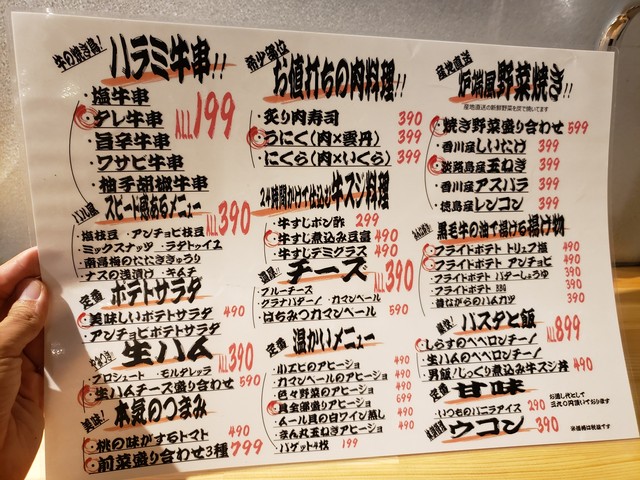 牛の焼き鳥!
ハラミ牛串!!
・塩牛串
タレ牛串
・旨辛牛串
・ワサビ牛串
・柚子胡椒牛串
ALL199
スピード感あるメニュー
ALL390
・塩枝豆 ・アンチョビ枝豆
・ミックスナッツ ・ラタトゥイユ
・南高梅のたたききゅうり
・ナスの浅漬け ・キムチ
定番
ポテトサラダ
美味しいポテトサラダ 490
・アンチョビポテトサラダ
生ハム
ALL390
・プロシュート ・モルタデッラ
生ハムチーズ盛り合わせ 590
本気のつまみ
桃の味がするトマト 490
前菜盛り合わせ3種 799
希少部位
お値打ちの肉料理!!
・炙り肉寿司 390
うにく(肉×雲丹) 399
・にくら(肉×いくら) 399
24時間かけて仕込む牛スジ料理
・牛すじポン酢 299
牛すじ煮込み豆富 490
・牛すじデミグラス 490
チーズ
ALL390
・ブルーチーズ
・グラナパダーノ ・カマンベール
・はちみつカマンベール 590
定番
温かいメニュー
・小エビのアヒージョ 490
・カマンベールのアヒージョ 490
・色々野菜のアヒージョ 490
貝全部盛りアヒージョ 699
・ムール貝の白ワイン蒸し 490
・まん丸玉ねぎアヒージョ 490
・バゲット4枚 199
産地直送
炉端風野菜焼き!!
産地直送の新鮮野菜を炭で焼いてます
焼き野菜盛り合わせ 599
・香川産しいたけ 399
淡路島産玉ねぎ 399
・香川産アスパラ 399
・徳島産レンコン 399
黒毛牛の油で揚げる揚げ物
フライドポテト トリュフ塩 490
フライドポテト アンチョビ 490
・フライドポテト バターしょうゆ 390
・フライドポテト BBQ 390
・昔ながらのハムカツ 390
パスタと飯
ALL899
しらすのペペロンチーノ
・生ハムのペペロンチーノ
・男飯!じっくり煮込み牛スジ丼 490
定番
甘味
・いつものバニラアイス 290
ウコン 390
お通し代として
三九〇円頂いております
※価格は税抜です